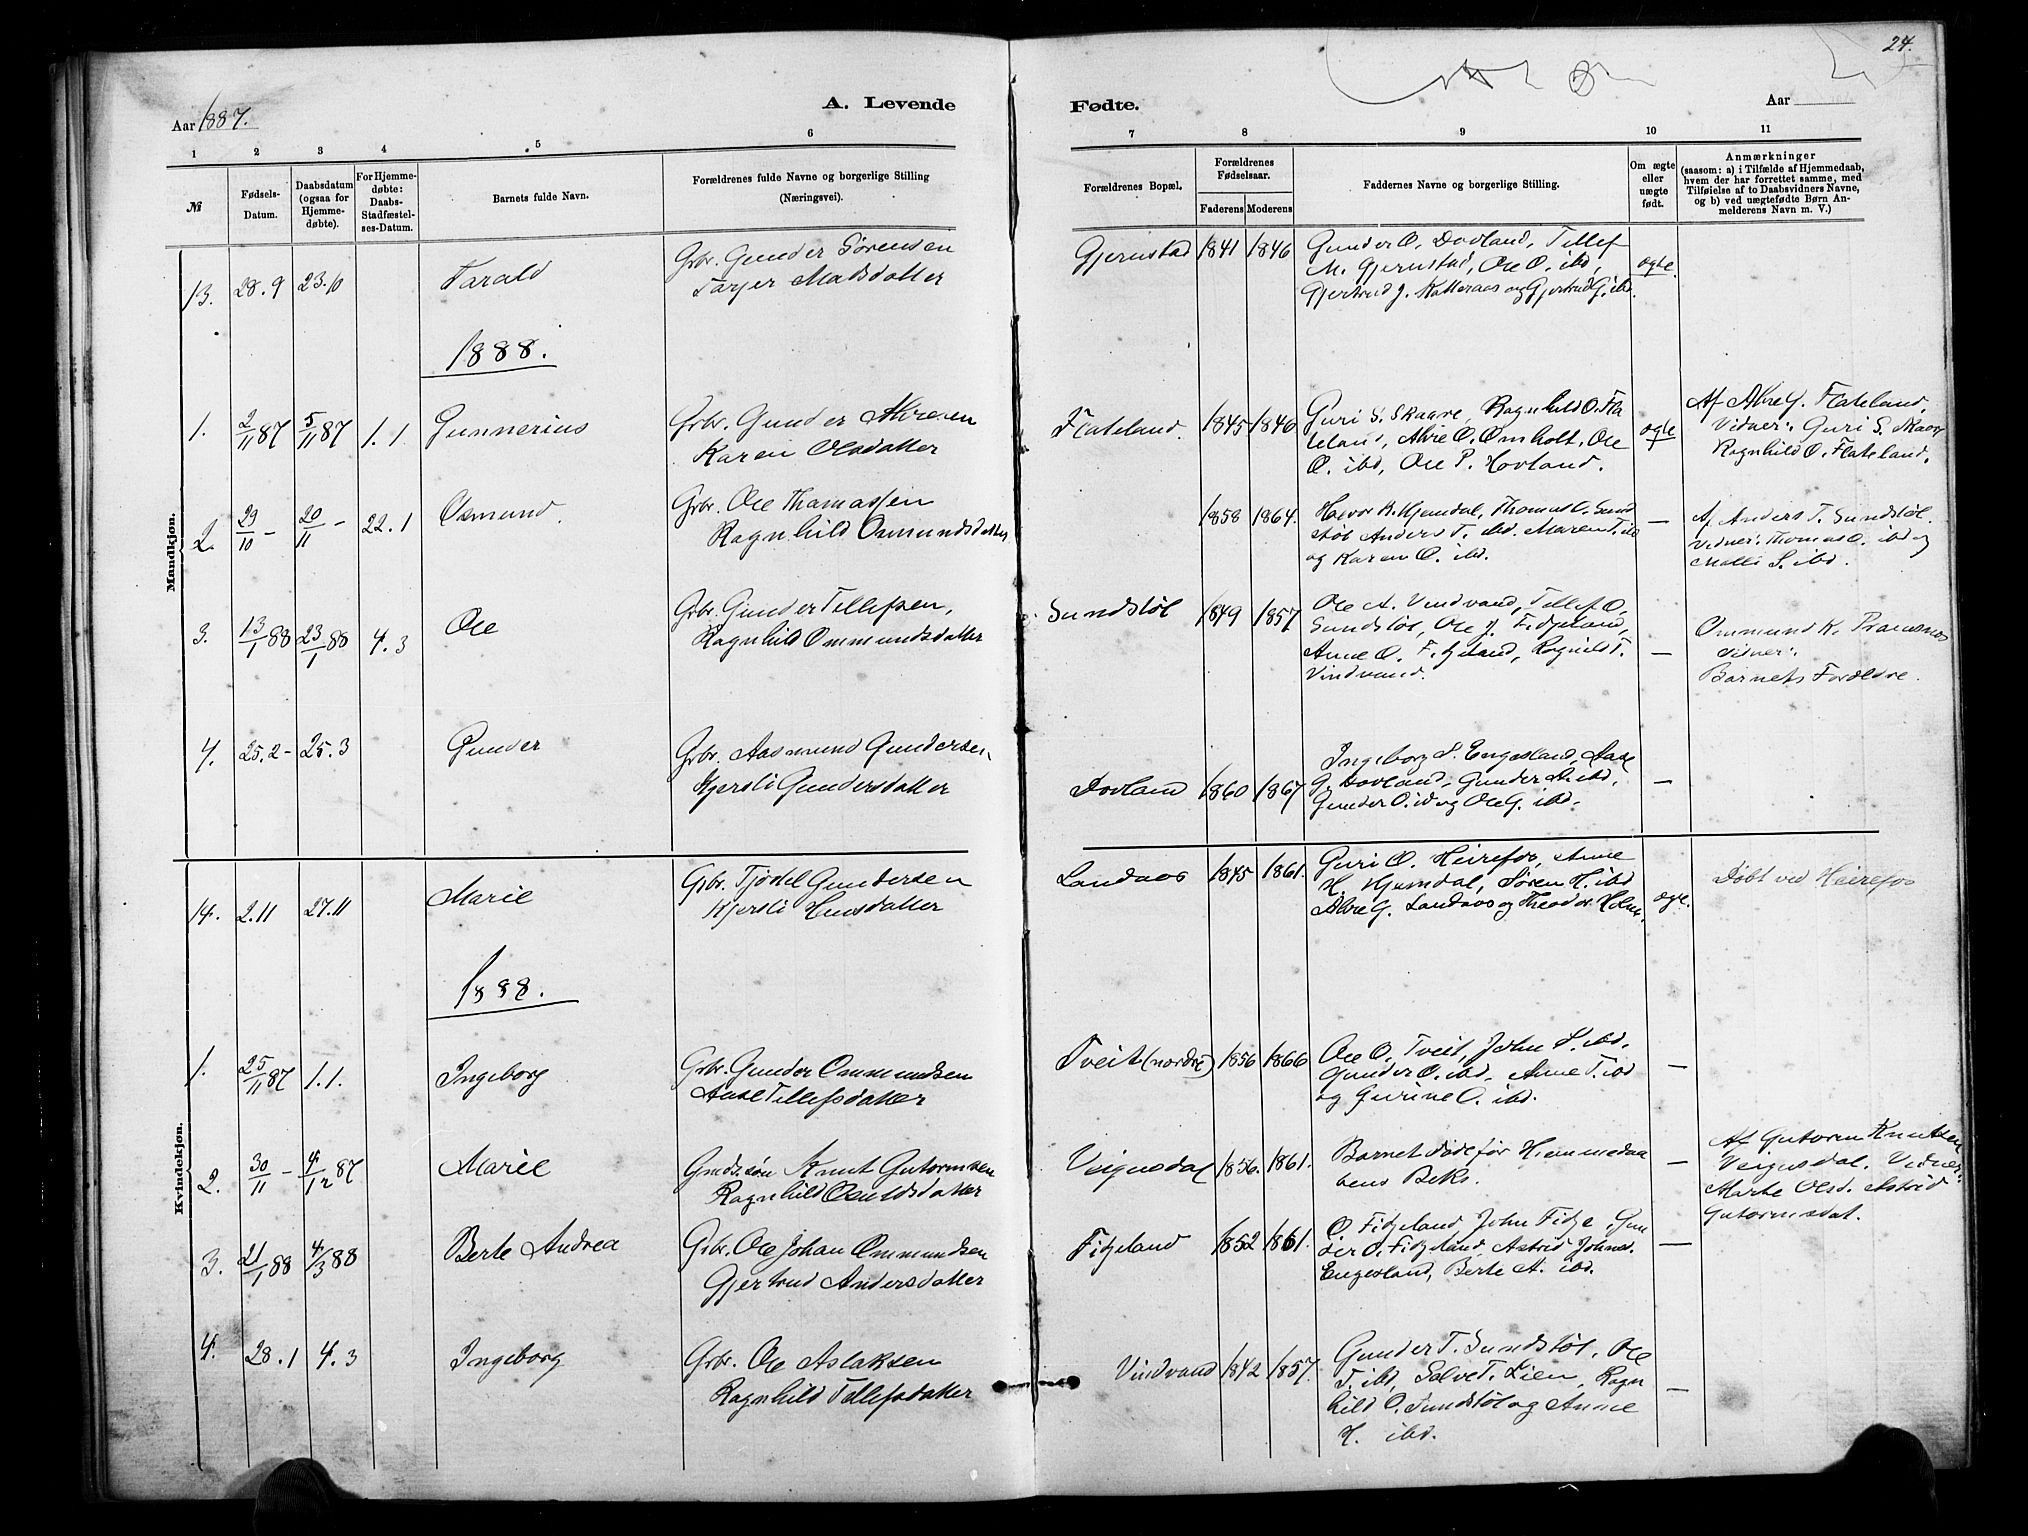 24.
Aar 1887.
A. Levende
Fødte.
Aar
1 2 3 4 5 6 7 8 9 10 11
№
Fødsels-
Datum.
Daabsdatum
(ogsaa for
Hjemme-
døbte).
For Hjemme-
døbte:
Daabs-
Stadfæstel-
ses-Datum.
Barnets fulde Navn.
Forældrenes fulde Navne og borgerlige Stilling
(Næringsvei).
Forældrenes Bopæl.
Forældrenes
Fødselsaar.
Faderens Moderens
Faddernes Navne og borgerlige Stilling.
Om ægte
eller
uægte
født.
Anmærkninger
(saasom: a) i Tilfælde af Hjemmedaab,
hvem der har forrettet samme, med
Tilføielse af to Daabsvidners Navne,
og b) ved uægtefødte Børn An-
melderens Navn m. V.)
Mandkjøn.
13. 28.9 23.10 Tarald
Grbr. Gunder Sørensen
Tarjer Madsdatter
Gjernstad 1841 1846
Gunder O. Dovland, Tellef
M. Gjernstad, Ole O. ibd,
Gjertrud J. Katteraas og Gjertrud G. ibd.
ægte
1888.
1. 2/11 87 5/11 87 1.1. Gunnerius
Grbr. Gunder Alvesen
Karen Olsdatter
Flateland. 1845 1846
Guri S. Skaare, Ragnhild O. Fla
teland, Alve O. Omholt, Ole
O. ibd, Ole P. Hovland.
ægte
Af Alve G. Flateland,
Vidner: Guri S. Skaar
Ragnhild O. Flateland.
2. 29/10 - 20/11 - 22.1 Osmund.
Grbr. Ole Thomassen
Ragnhild Osmundsdatter
1858 1864.
Halvor B. Hjemdal, Thomas O. Sund
støl Anders T. ibd. Maren T. ibd
og Karen O. ibd.
—
Af Anders T. Sundstøl.
Vidner: Thomas O. ibd og
Malli S. ibd.
3. 13/1 88 23/1 88 4.3 Ole
Grbr. Gunder Tellefsen,
Ragnhild Ommundsdatter
Sundstøl 1849 1857
Ole A. Vindvand, Tellef O.
Sundstøl, Ole J. Fidjeland,
Anne O. Fidjeland, Ragnild T.
Vindvand.
—
Ommund K.
Vidner:
Barnets Forældre.
4. 25.2 - 25.3 Gunder
Grbr. Aasmund Gundersen,
Kjersti Gundersdatter
Dovland 1860 1867
Ingeborg S. Engesland, Aase
G. Dovland, Gunder A. ibd,
Gunder O. ibd og Ole G. ibd.
—
Kvindekjøn.
14. 2.11 27.11 Marie
Grbr. Tjødel Gundersen
Kjersti Hansdatter
Landaas 1845 1861.
Guri O. Heirefos, Anne
H. Hjemdal, Søren H. ibd
Alve G. Landaas og Theodor Holm.
ægte.
Døbt ved Heirefos
1888.
1. 25/11 87 1.1. Ingeborg
Grbr. Gunder Ommundsen
Aase Tellefsdatter
Tveit (nordre) 1856 1866
Ole O. Tveit, John S. ibd.
Gunder O. ibd. Anne T. ibd
og Gurine O. ibd.
—
2. 30/11 - 4/12 87 Marie
Grdssøn Knut Gutormsen
Ragnhild Osuldsdatter
Veignsdal 1856. 1861.
Barnet døde før Hjemmedaa
bens Beks.
—
Af Gutorm Knutsen
Veignsdal. Vidner:
Marte Olsd. Astrid
Gutormsdat.
3. 21/1 88 4/3 88 Berte Andrea
Grbr. Ole Johan Ommundsen
Gjertrud Andersdatter
Fidjeland 1852 1861.
O. Fidjeland, John Fidje, Gun
der O. Fidjeland, Astrid Johns.
Engesland, Berte A. ibd.
—
4. 28.1 4.3 Ingeborg
Grbr. Ole Aslaksen
Ragnhild Tellefsdatter
Vindvand 1842 1857.
Gunder T. Sundstøl, Ole
T. ibd, Salve T. Lien, Ragn
hild O. Sundstøl og Anne
H. ibd.
—